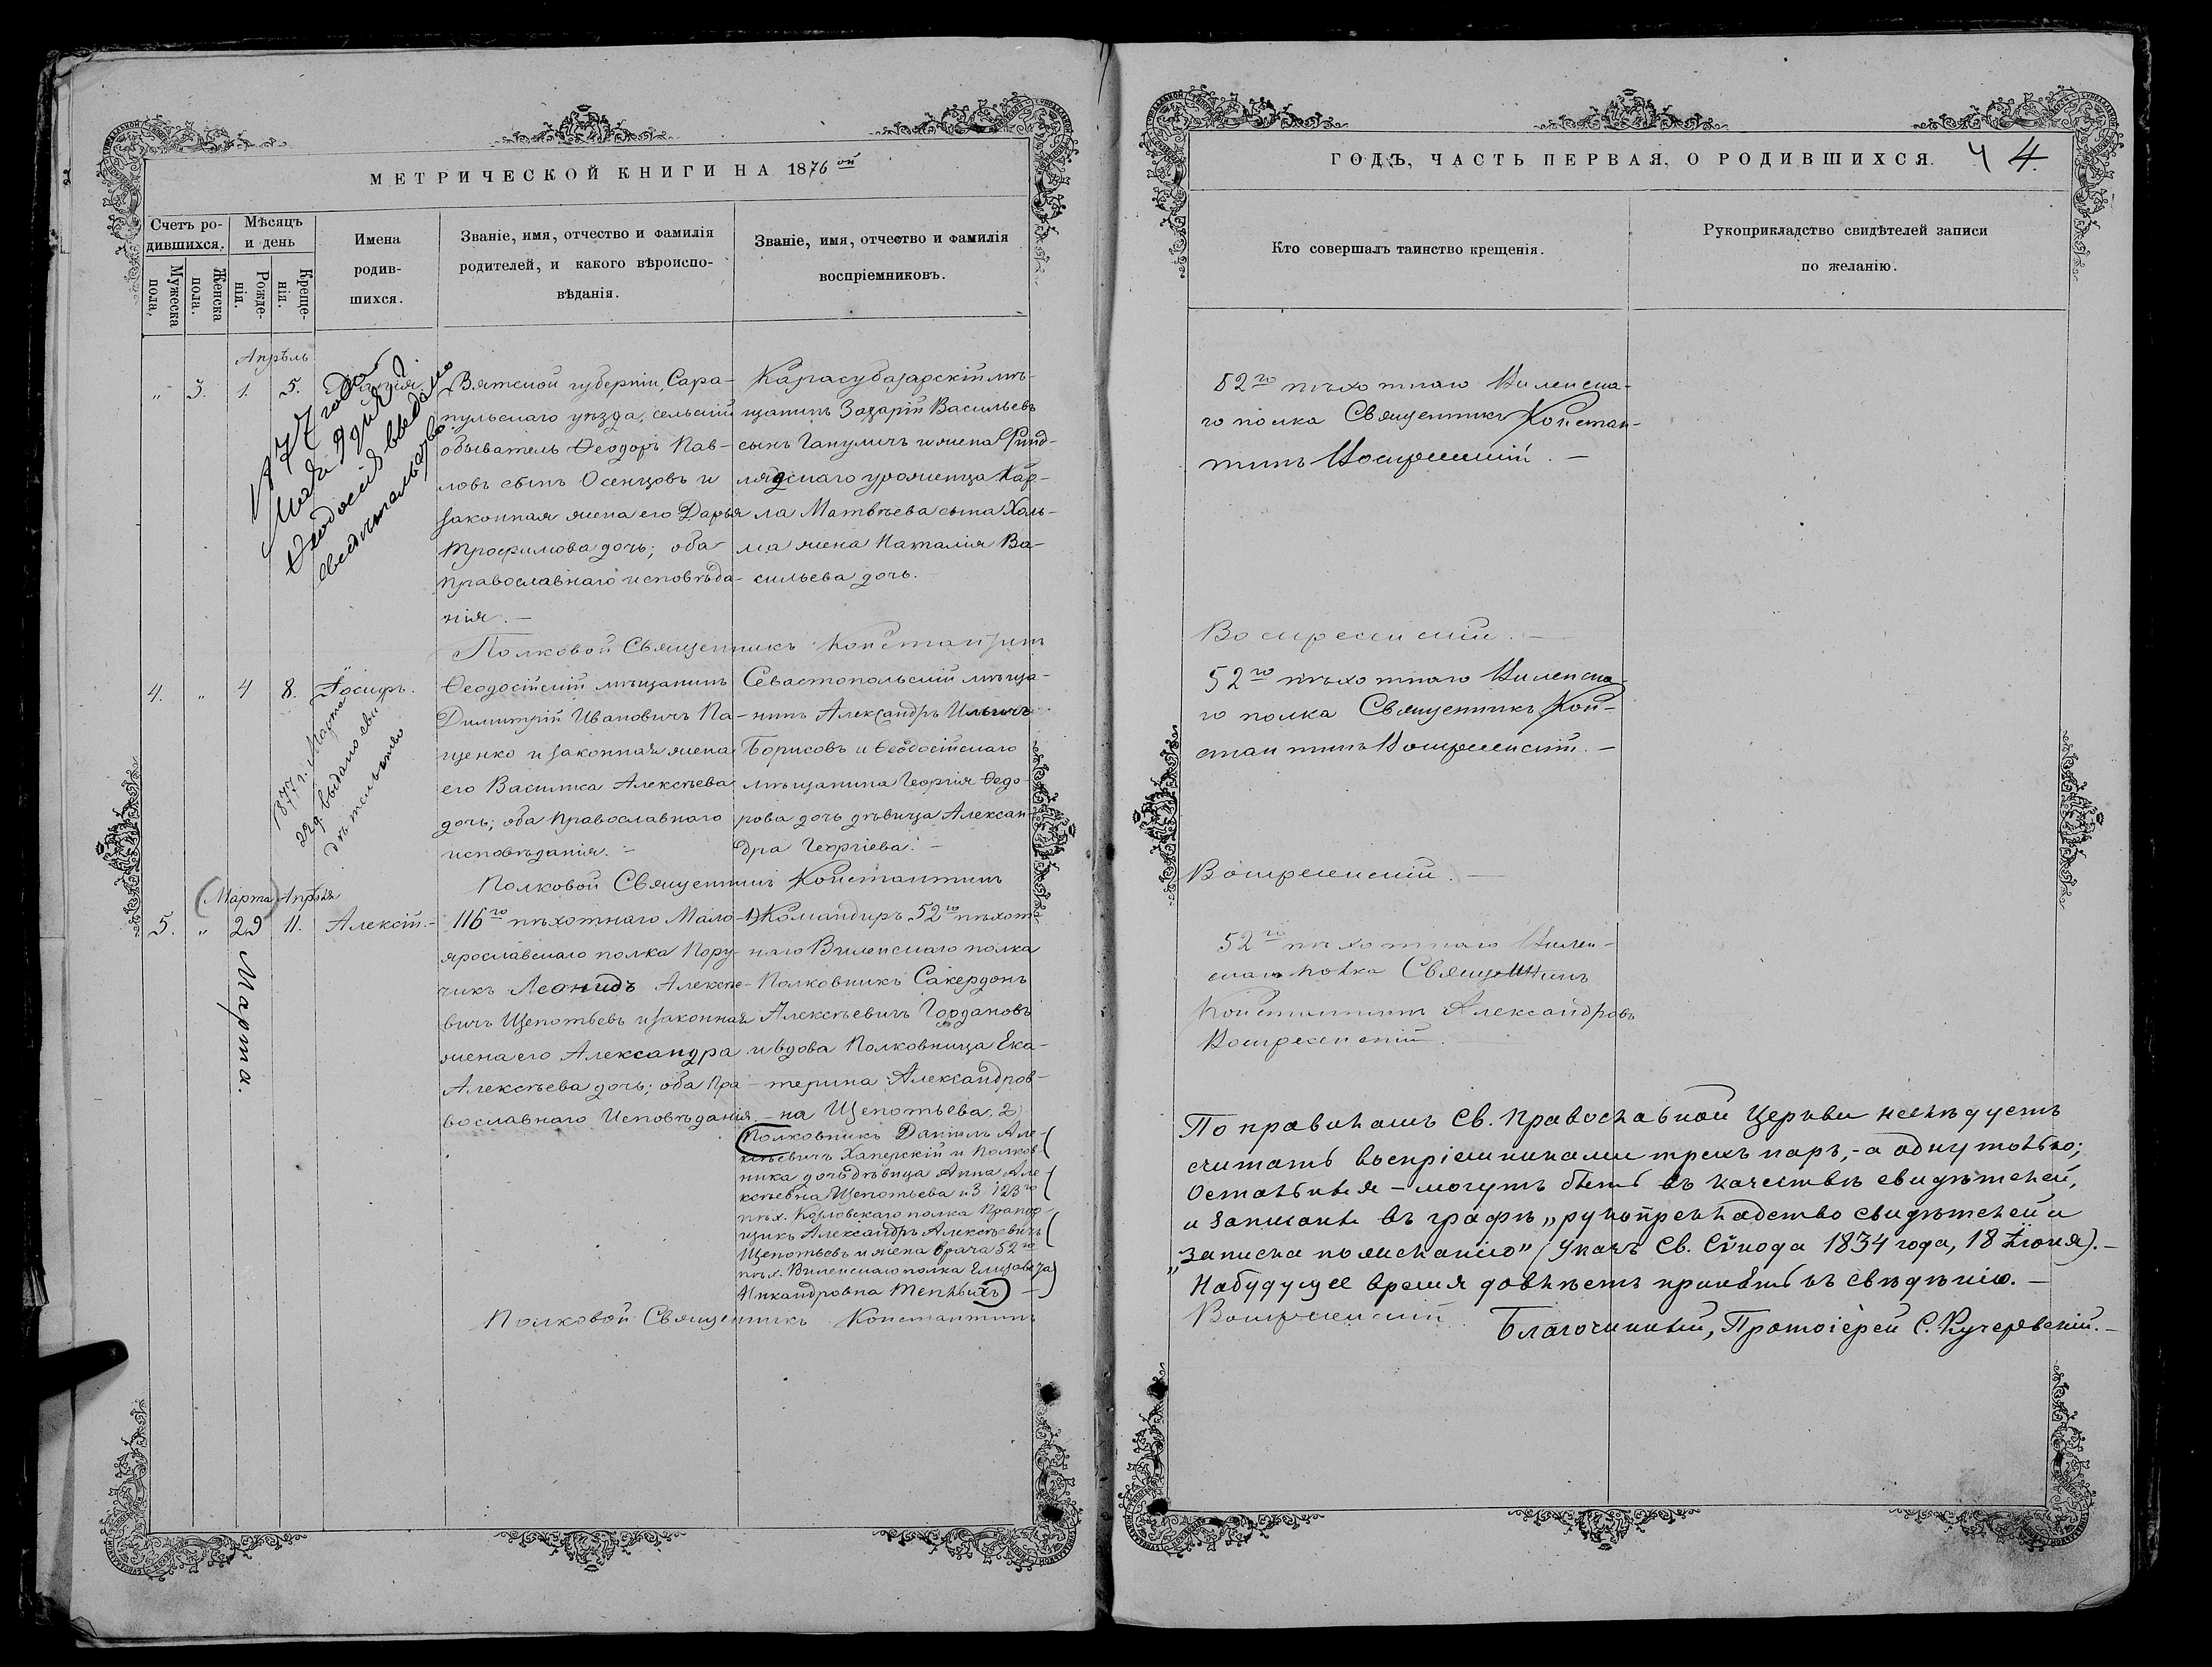 МЕТРИЧЕСКОЙ КНИГИ НА 1876ой
Счетъ ро-
дившихся.
Мужеска
пола.
Женска
пола.
Мѣсяцъ
и день
Рожде-
нія.
Креще-
нія.
Имена
родив-
шихся.
Званіе, имя, отчество и фамилія
родителей, и какого вѣроиспо-
вѣданія.
Званіе, имя, отчество и фамилія
воспріемниковъ.
Апрѣль
" 3. 1. 5.
1877 года
Мая
выдано
свидѣтельство
Вятской губерніи, Сара-
пульскаго уѣзда, сельскій
обыватель Ѳеодоръ Пав-
ловъ сынъ Осенцовъ и
законная жена его Дарья
Трофимова дочь; оба
православнаго исповѣда-
нія. —
Карасубазарскій мѣ-
щанинъ Захарій Васильевъ
сынъ Ганулич и жена Финд-
ляндскаго уроженца Кар-
ла Матвѣева сына Холь-
ма жена Наталія Ва-
сильева дочь.
Полковой Священникъ Константинъ
4. " 4 8. Іосифъ.
1877 г. Марта
22 д. выдано сви-
дѣтельство
Ѳеодосійскій мѣщанинъ
Димитрій Ивановичъ Па-
щенко и законная жена
его Василиса Алексѣева
дочь; оба Православнаго
исповѣданія. —
Севастопольскій мѣща-
нинъ Александръ Ильичъ
Борисовъ и Ѳеодосійскаго
мѣщанина Георгія Ѳедо-
рова дочь дѣвица Алексан-
дра Георгіева. —
Полковой Священникъ Константинъ
(Марта) Апрѣля
5. " 29 11. Алексій. —
Марта.
116го пѣхотнаго Мало-
ярославскаго полка Пору-
чикъ Леонидъ Алексѣе-
вичъ Щепотьевъ и законная
жена его Александра
Алексѣева дочь; оба Пра-
вославнаго Исповѣданія. —
1) Командиръ 52го пѣхот-
наго Виленскаго полка
Полковникъ Сакердонъ
Алексѣевичъ Гордановъ
и вдова Полковница Ека-
терина Александров-
на Щепотьева. 2)
Полковникъ Даніилъ Але-
ксѣевичъ Хаперскій и Полков-
ника дочь дѣвица Анна Але-
ксѣевна Щепотьева и 3. 123го
пѣх. Козловскаго полка Прапор-
щикъ Александръ Алексѣевичъ
Щепотьевъ и жена врача 52го
пѣх. Виленскаго полка Елизавета
Никандровна
Полковой Священникъ Константинъ
ГОДЪ, ЧАСТЬ ПЕРВАЯ, О РОДИВШИХСЯ. 4 4.
Кто совершалъ таинство крещенія.
Рукоприкладство свидѣтелей записи
по желанію.
52го пѣхотнаго Виленска-
го полка Священникъ Констан-
тинъ Воскресенскій. —
Воскресенскій. —
52го пѣхотнаго Виленска-
го полка Священникъ Кон-
стантинъ Воскресенскій. —
Воскресенскій. —
52го пѣхотнаго Вилен-
скаго полка Священникъ
Константинъ Александровъ
Воскресенскій.
По правиламъ Св. Православной Церкви неслѣдуетъ
считать воспріемниками трехъ паръ, - а одну только;
Остальныя - могутъ быть въ качествѣ свидѣтелей,
и записаны въ графѣ „рукоприкладство свидѣтелей и
„записка по желанію" (Указъ Св. Сѵнода 1834 года, 18 Іюня). —
Набудущее время довлѣетъ принять къ свѣдѣнію. —
Воскресенскій.
Благочинный, Протоіерей С. Кучеровскій. —